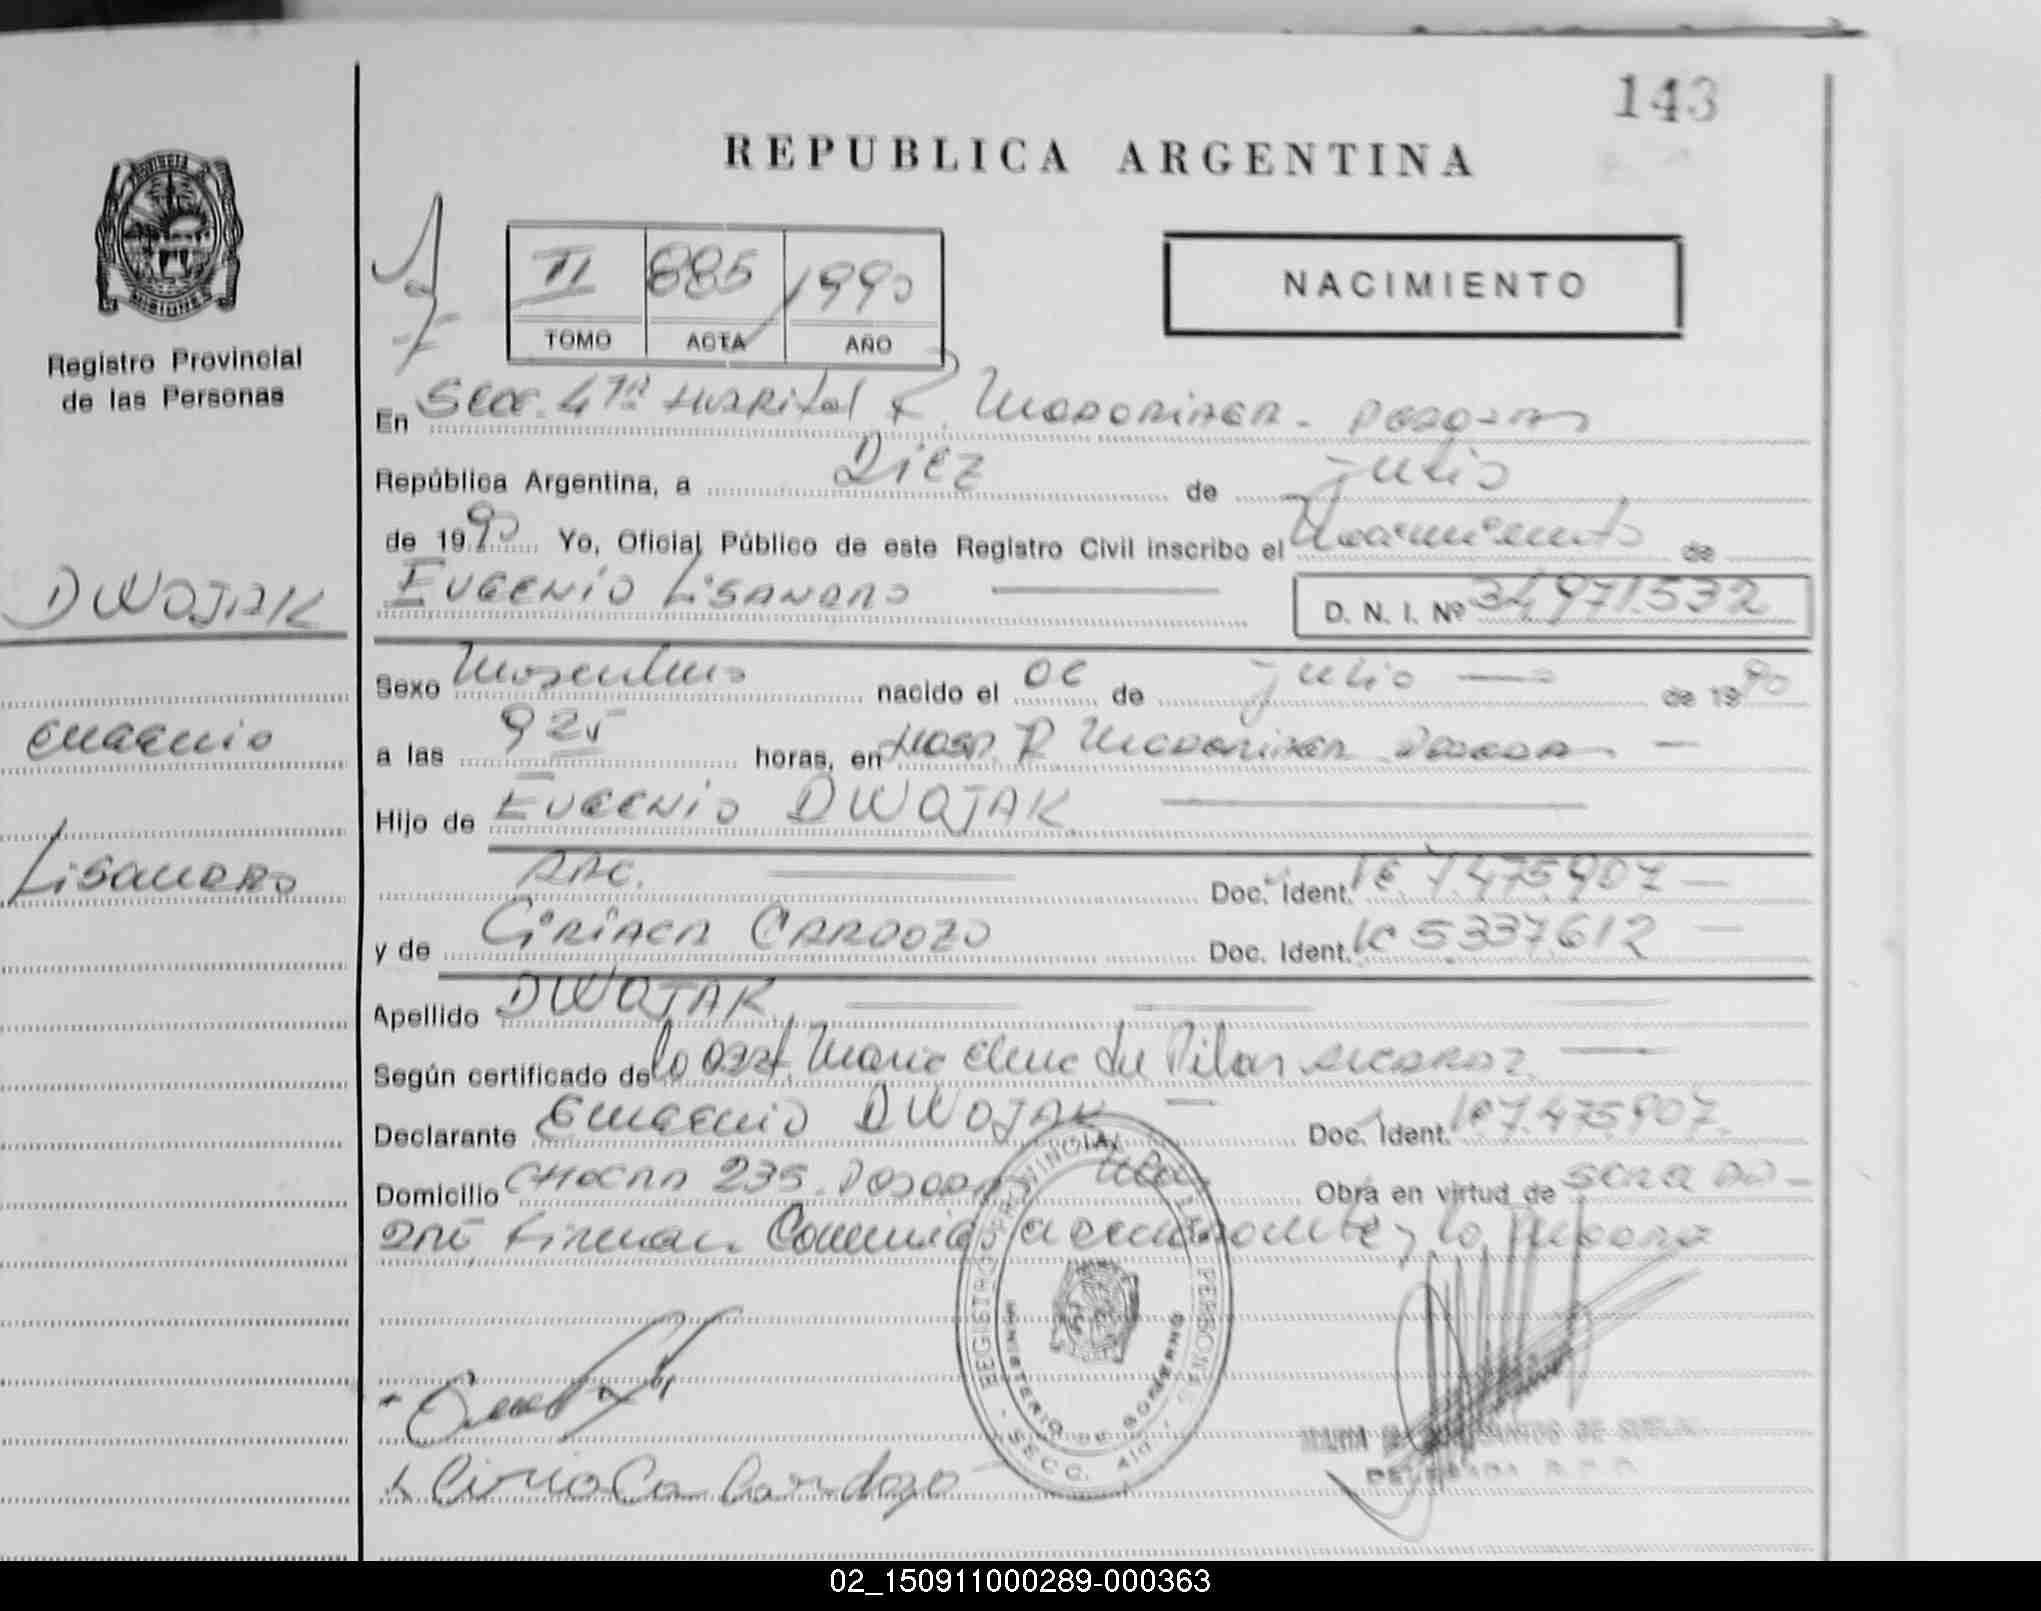 143
REPUBLICA ARGENTINA
PROVINCIA
MISIONES
Registro Provincial
de las Personas
II 885 1990
TOMO ACTA AÑO
NACIMIENTO
En Secc. 4ta Hospital R. Madariaga - Posadas
República Argentina, a Diez de julio
de 1990 Yo, Oficial Público de este Registro Civil inscribo el Nacimiento de
DWOJAK
EUGENIO LISANDRO
D. N. I. Nº 34971.532
Sexo Masculino nacido el 06 de julio de 1990
Eugenio
a las 925 horas, en Hosp. R. Madariaga Posadas
Hijo de EUGENIO DWOJAK
Lisandro
ARG. Doc. Ident. 7.475.907
y de CIRIACA CARDOZO Doc. Ident. 5337612
Apellido DWOJAK
Según certificado de la obst. Maria Elena del Pilar Alcaraz
Declarante Eugenio DWOJAK Doc. Ident. 7.475.907
Domicilio CHACRA 235. Posadas Obra en virtud de
Firman el declarante y la madre
REGISTRO PROVINCIAL DE LAS PERSONAS
MINISTERIO DE GOBIERNO
SECC. 4ta
Ciriaca Cardozo
DELEGADA
02_150911000289-000363